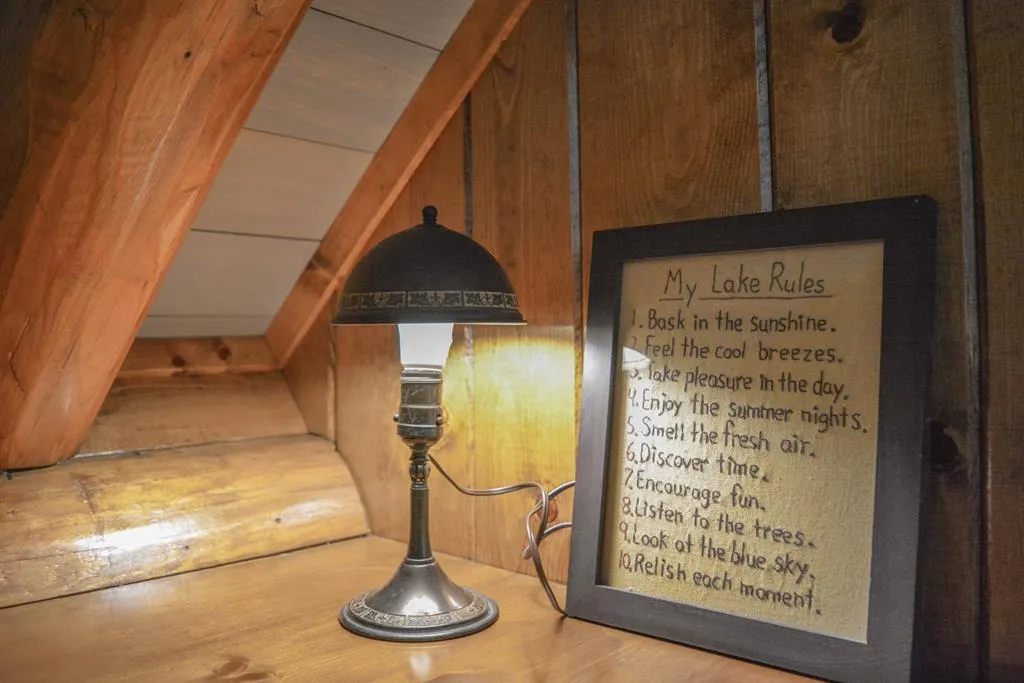 My Lake Rules
1. Bask in the sunshine.
2. Feel the cool breezes.
3. Take pleasure in the day.
4. Enjoy the summer nights.
5. Smell the fresh air.
6. Discover time.
7. Encourage fun.
8. Listen to the trees.
9. Look at the blue sky.
10. Relish each moment.